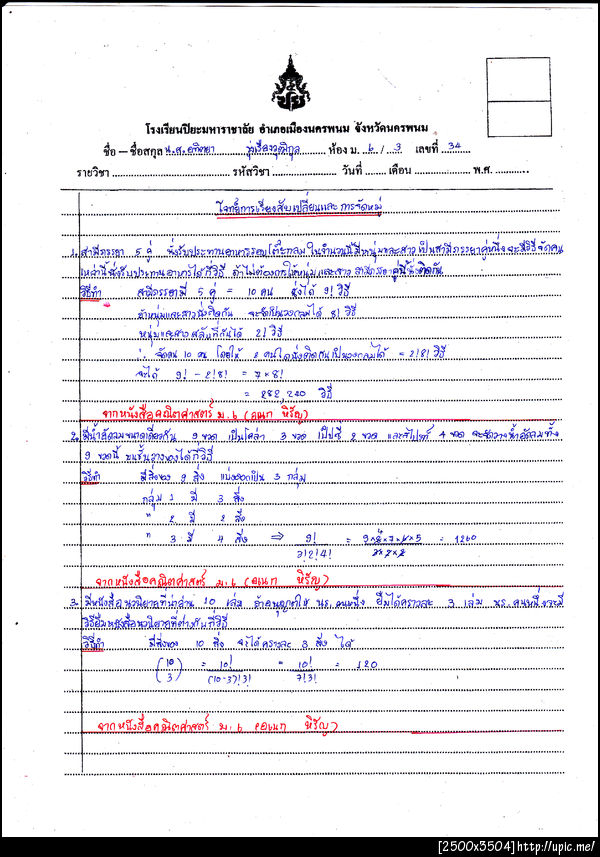 โรงเรียนปิยะมหาราชาลัย อำเภอเมืองนครพนม จังหวัดนครพนม
ชื่อ – ชื่อสกุล น.ส. รุ่งเรืองวุฒิกุล ห้อง ม. 6 / 3 เลขที่ 34
รายวิชา รหัสวิชา วันที่ เดือน พ.ศ.
โจทย์การเรียงสับเปลี่ยนและการจัดหมู่
1. สามีภรรยา 5 คู่ นั่งรับประทานอาหารรอบโต๊ะกลม ในจำนวนนี้มีหนุ่มและสาว เป็นสามีภรรยาคู่หนึ่งจะมีวิธีจัดคน
เหล่านี้นั่งรับประทานอาหารได้กี่วิธี ถ้าไม่ต้องการให้หนุ่มและสาว สามีภรรยาคู่นี้นั่งติดกัน
วิธีทำ สามีภรรยามี 5 คู่ = 10 คน นั่งได้ 9! วิธี
ถ้าหนุ่มและสาวนั่งติดกัน จะจัดเป็นวงกลมได้ 8! วิธี
หนุ่มและสาวสลับที่กันได้ 2! วิธี
∴ จัดคน 10 คน โดยให้ 2 คนใดนั่งติดกันเป็นวงกลมได้ = 2!8! วิธี
จะได้ 9! - 2!8! = 7 × 8!
= 282,240 วิธี
จากหนังสือคณิตศาสตร์ ม.6 (อเนก หิรัญ)
2. มีน้ำอัดลมขนาดเดียวกัน 9 ขวด เป็นโคล่า 3 ขวด เป๊ปซี่ 2 ขวด และสไปรท์ 4 ขวด จะจัดวางน้ำอัดลมทั้ง
9 ขวดนี้ บนชั้นวางของได้กี่วิธี
วิธีทำ มีสิ่งของ 9 สิ่ง แบ่งออกเป็น 3 กลุ่ม
กลุ่ม 1 มี 3 สิ่ง
" 2 มี 2 สิ่ง
" 3 มี 4 สิ่ง ⇒ 9! = 9×8×7×6×5 = 1260
3!2!4! 3×2×2
จากหนังสือคณิตศาสตร์ ม.6 (อเนก หิรัญ)
3. มีหนังสือนวนิยายที่น่าอ่าน 10 เล่ม ถ้าอนุญาตให้ นร. คนหนึ่ง ยืมได้คราวละ 3 เล่ม นร. คนหนึ่งจะมี
วิธียืมหนังสือนวนิยายที่ต่างกันกี่วิธี
วิธีทำ มีสิ่งของ 10 สิ่ง จะได้คราวละ 3 สิ่ง ได้
(10 = 10! = 10! = 120
3) (10-3)!3! 7!3!
จากหนังสือคณิตศาสตร์ ม.6 (อเนก หิรัญ)
[2500x3504]http://upic.me/